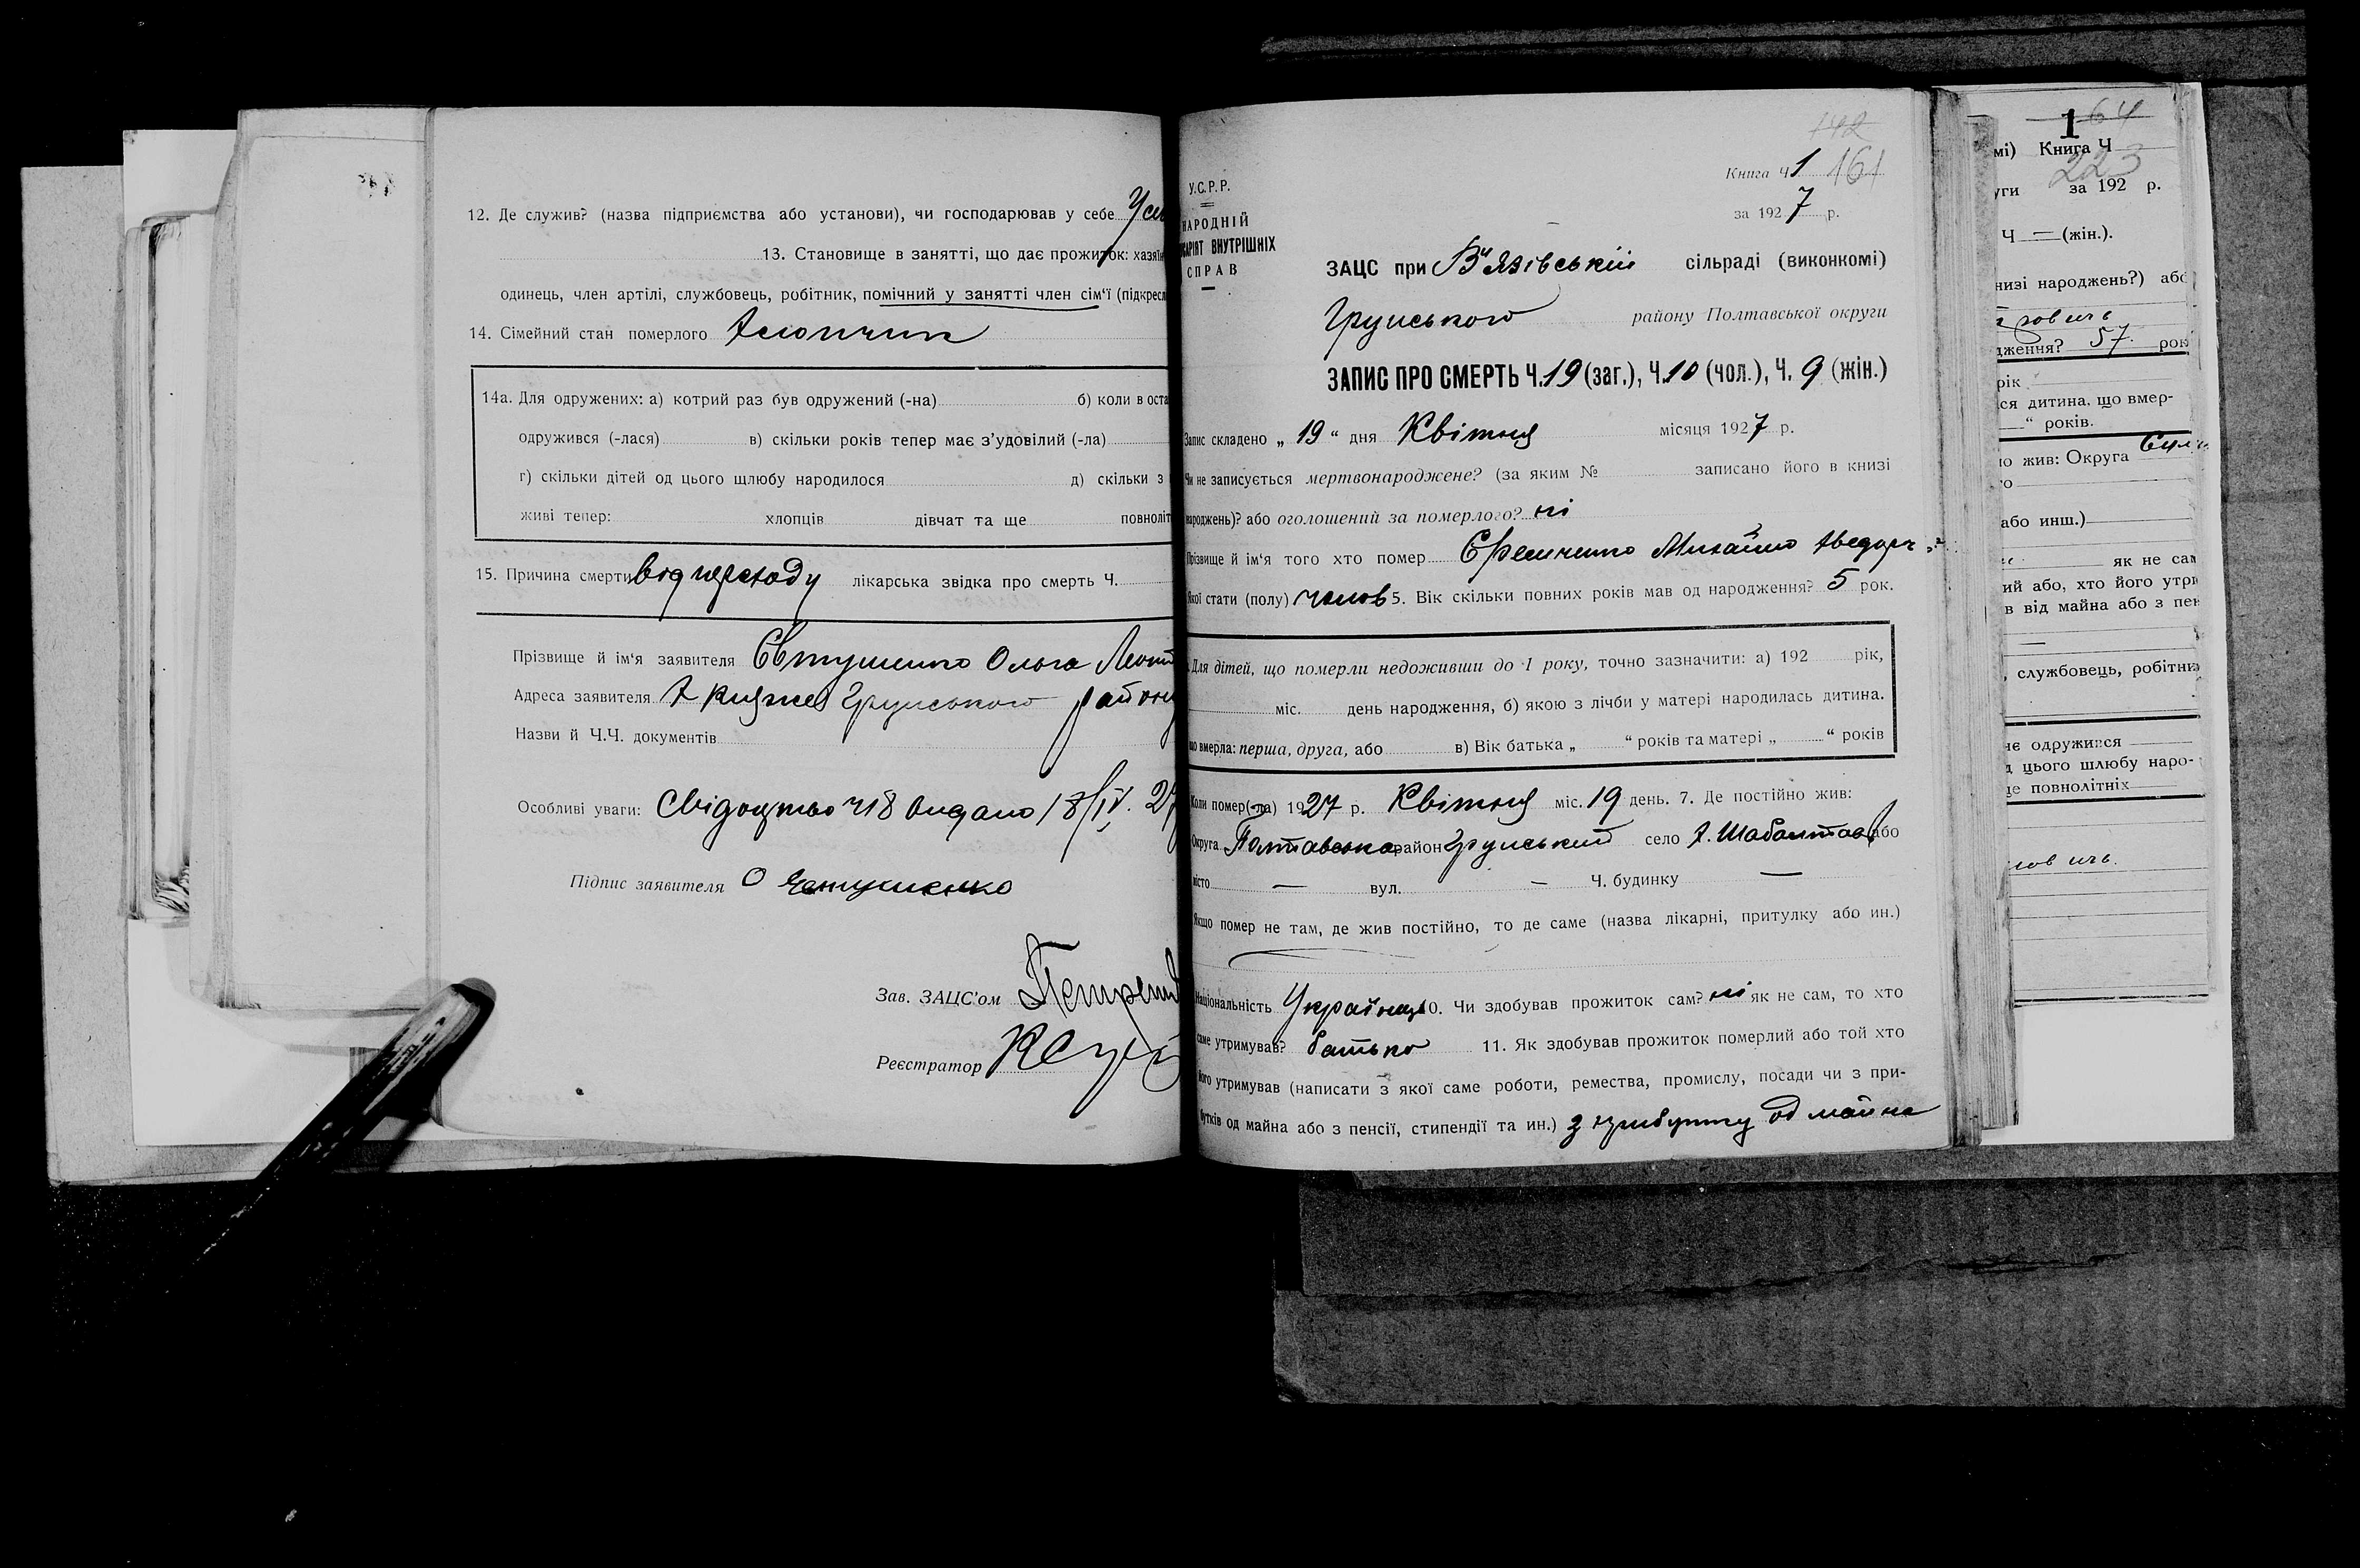 12. Де служив? (назва підприємства або установи), чи господарював у себе
13. Становище в занятті, що дає прожиток: хазяїн
одинець, член артілі, службовець, робітник, помічний у занятті член сім'ї (підкресл
14. Сімейний стан померлого
14а. Для одружених: а) котрий раз був одружений (-на) б) коли в оста
одружився (-лася) в) скільки років тепер має з'удовілий (-ла)
г) скільки дітей од цього щлюбу народилося д) скільки з
живі тепер: хлопців дівчат та ще повноліт
15. Причина смерти від лікарська звідка про смерть Ч.
Прізвище й ім'я заявителя Євтушенко Ольга
Адреса заявителя Грунського району
Назви й Ч.Ч. документів
Особливі уваги: Свідоцтво ч18 видано 18/IV. 27
Підпис заявителя О Євтушенко
Зав. ЗАЦС'ом
Реєстратор
142
Книга Ч 1 161
за 1927 р.
У.С.Р.Р.
НАРОДНІЙ
ВНУТРІШНІХ
СПРАВ
ЗАЦС при В'язівській сільраді (виконкомі)
Грунського району Полтавської округи
ЗАПИС ПРО СМЕРТЬ Ч.19 (заг.), Ч.10 (чол.), Ч. 9 (жін.)
Запис складено „ 19 “ дня Квітня місяця 1927 р.
Чи не записується мертвонароджене? (за яким № записано його в книзі
народжень)? або оголошений за померлого? ні
Прізвище й ім'я того хто помер Єфименко Михайло
Якої стати (полу) чолов 5. Вік скільки повних років мав од народження? 5 рок.
Для дітей, що померли недоживши до 1 року, точно зазначити: а) 192 рік,
міс. день народження, б) якою з лічби у матері народилась дитина.
що вмерла: перша, друга, або в) Вік батька „ “ років та матері „ “ років
Коли помер(-ла) 1927 р. Квітня міс. 19 день. 7. Де постійно жив:
Округа Полтавська район Грунський село або
місто — вул. — Ч. будинку —
Якщо помер не там, де жив постійно, то де саме (назва лікарні, притулку або ин.)
Національність 10. Чи здобував прожиток сам? ні як не сам, то хто
саме утримував? батько 11. Як здобував прожиток померлий або той хто
його утримував (написати з якої саме роботи, ремества, промислу, посади чи з при-
бутків од майна або з пенсії, стипендії та ин.) з прибутку од майна
1 64
мі) Книга Ч
223
уги за 192 р.
Ч — (жін.).
низі народжень?) або
дження? 57. рок
рік
ся дитина, що вмер-
—“ років.
о жив: Округа
або инш.)
як не сам
ий або, хто його утри
в від майна або з пен
, службовець, робітни
нє одружився
д цього шлюбу наро-
ще повнолітніх